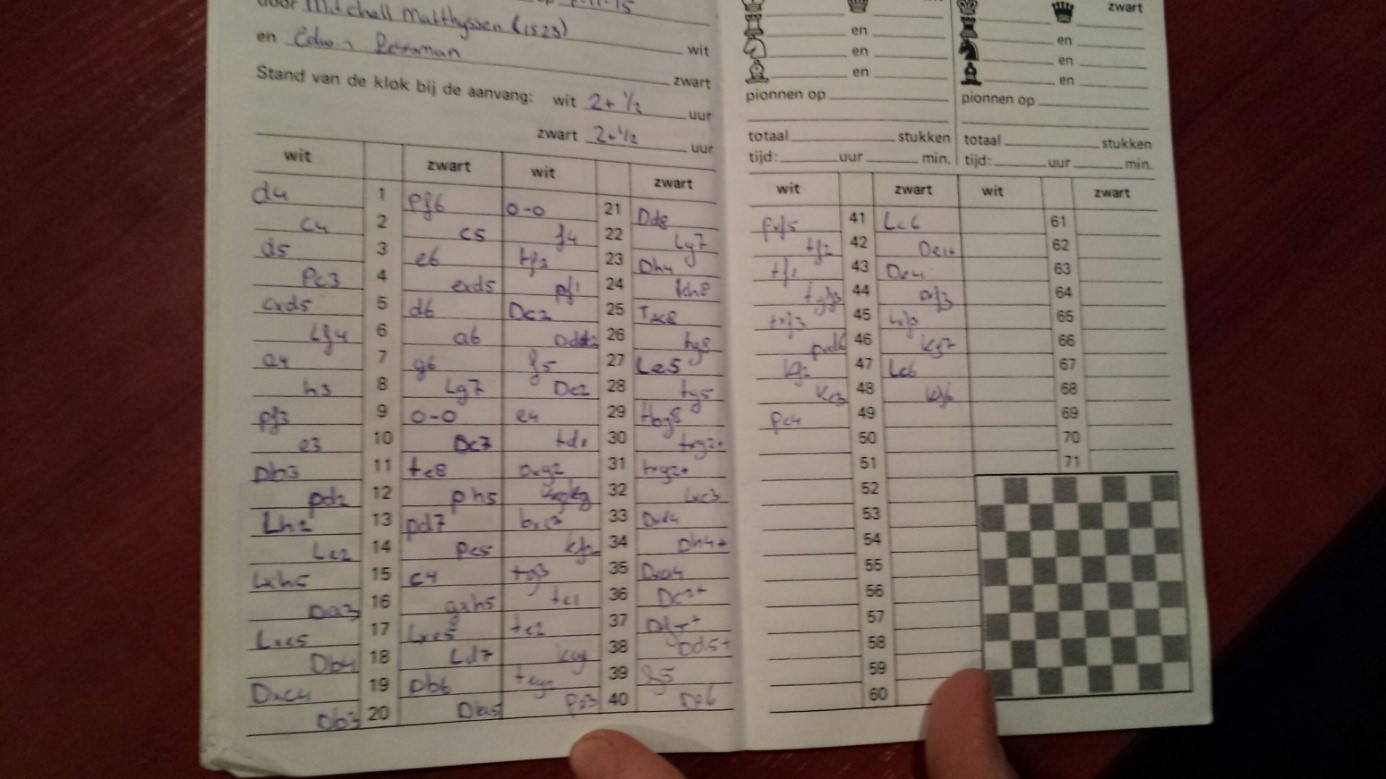 door Mitchell Matthyssen (1523)
en Edwin wit
zwart
Stand van de klok bij de aanvang: wit 2+ 1/2 uur
zwart 2+1/2 uur
wit zwart wit zwart
d4 1 Pf6 0-0 21 Dd8
c4 2 c5 f4 22 Lg7
d5 3 e6 23 Dh4
Pc3 4 exd5 Pf1 24 Kh8
cxd5 5 d6 Dc2 25
Lf4 6 a6 26 tg8
a4 7 g6 f5 27 Le5
h3 8 Lg7 De2 28 tg5
Pf3 9 0-0 e4 29 tbg8
e3 10 Dc7 td1 30 txg2+
Db3 11 te8 Dxg2 31 txg2+
Pd2 12 Ph5 32 Lxc3
Lh2 13 Pd7 bxc3 33
Le2 14 Pc5 Kf2 34 Dh4+
Lxh5 15 c4 tg3 35 Dxa4
Da3 16 gxh5 te1 36 Dc2+
Lxe5 17 Lxe5 te2 37
Db4 18 Ld7 38 Dd5+
Dxc4 19 Db6 39
Db3 20 Da5 40
en en
en en
en en
zwart
pionnen op pionnen op
totaal stukken totaal stukken
tijd: uur min. tijd: uur min.
wit zwart wit zwart
41 Lc6 61
tf2 42 De1+ 62
tf1 43 De4 63
44 64
txf3 45 65
Pxd6 46 Kg7 66
Kg2 47 Lc6 67
Ke3 48 Kf6 68
Pc4 49 69
50 70
51 71
52
53
54
55
56
57
58
59
60